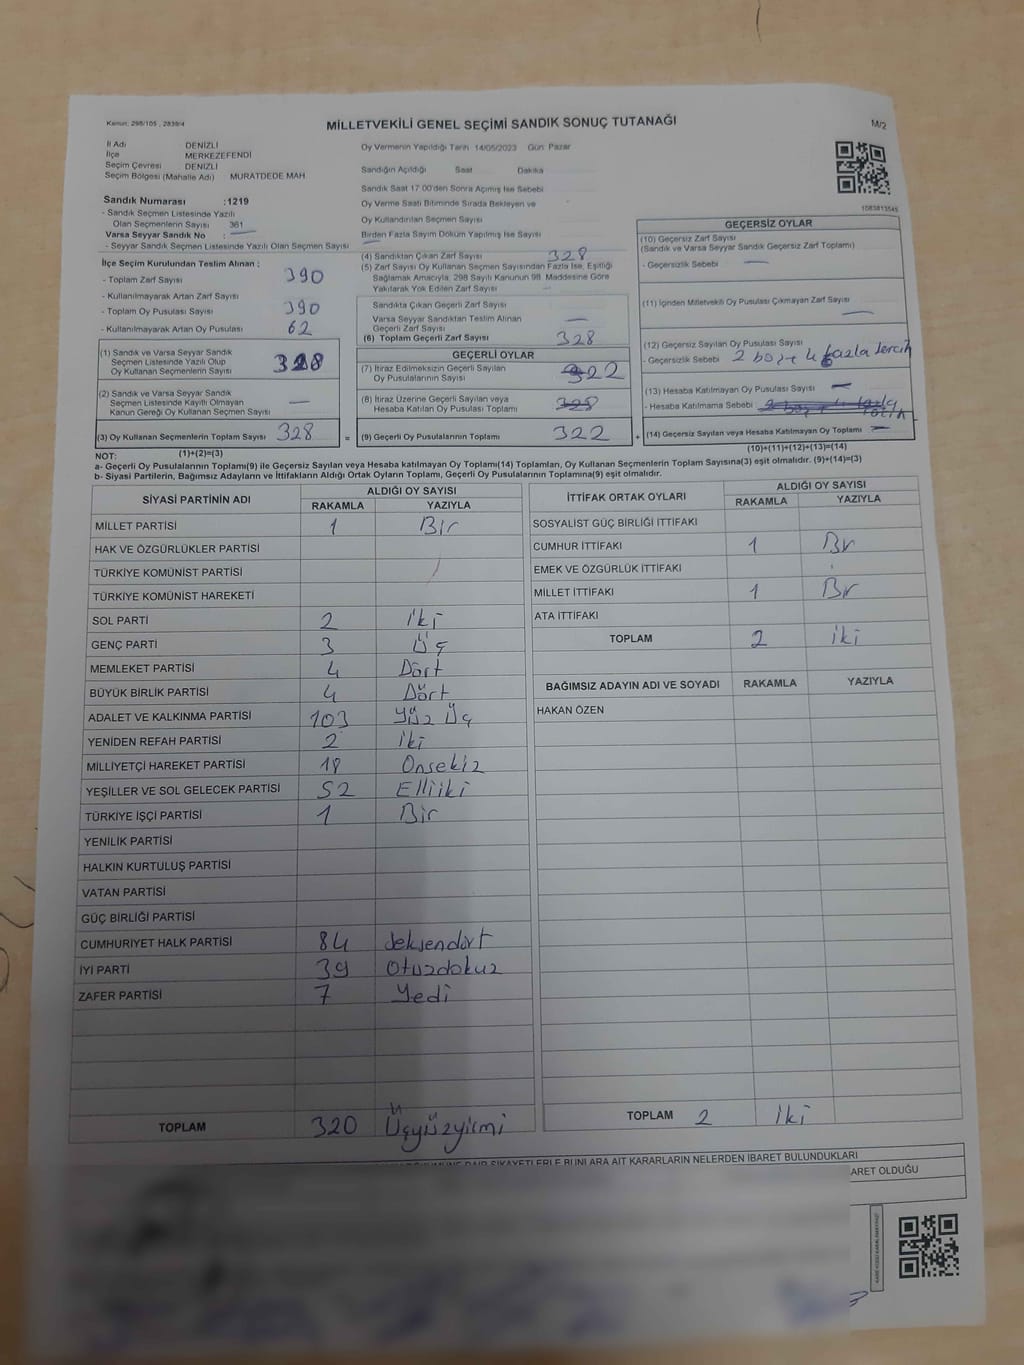 Kanun: 298/105 , 2839/4
MİLLETVEKİLİ GENEL SEÇİMİ SANDIK SONUÇ TUTANAĞI
M/2
İl Adı DENİZLİ
İlçe MERKEZEFENDİ
Seçim Çevresi DENİZLİ
Seçim Bölgesi (Mahalle Adı) MURATDEDE MAH.
Sandık Numarası :1219
- Sandık Seçmen Listesinde Yazılı
Olan Seçmenlerin Sayısı 361
Varsa Seyyar Sandık No :
- Seyyar Sandık Seçmen Listesinde Yazılı Olan Seçmen Sayısı
Oy Vermenin Yapıldığı Tarih 14/05/2023 Gün: Pazar
Sandığın Açıldığı Saat Dakika
Sandık Saat 17.00'den Sonra Açılmış İse Sebebi
Oy Verme Saati Bitiminde Sırada Bekleyen ve
Oy Kullandırılan Seçmen Sayısı
Birden Fazla Sayım Döküm Yapılmış İse Sayısı
1083813545
İlçe Seçim Kurulundan Teslim Alınan :
- Toplam Zarf Sayısı 390
- Kullanılmayarak Artan Zarf Sayısı
- Toplam Oy Pusulası 390
- Kullanılmayarak Artan Oy Pusulası 62
(1) Sandık ve Varsa Seyyar Sandık
Seçmen Listesinde Yazılı Olup
Oy Kullanan Seçmenlerin Sayısı 328
(2) Sandık ve Varsa Seyyar Sandık
Seçmen Listesinde Kayıtlı Olmayan
Kanun Gereği Oy Kullanan Seçmen Sayısı —
(3) Oy Kullanan Seçmenlerin Toplam Sayısı 328
(1)+(2)=(3)
(4) Sandıktan Çıkan Zarf Sayısı 328
(5) Zarf Sayısı Oy Kullanan Seçmen Sayısından Fazla İse, Eşitliği
Sağlamak Amacıyla, 298 Sayılı Kanunun 98. Maddesine Göre
Yakılarak Yok Edilen Zarf Sayısı —
Sandıkta Çıkan Geçerli Zarf Sayısı
Varsa Seyyar Sandıktan Teslim Alınan
Geçerli Zarf Sayısı —
(6) Toplam Geçerli Zarf Sayısı 328
GEÇERLİ OYLAR
(7) İtiraz Edilmeksizin Geçerli Sayılan
Oy Pusulalarının Sayısı 322
(8) İtiraz Üzerine Geçerli Sayılan veya
Hesaba Katılan Oy Pusulası Toplamı 328
= (9) Geçerli Oy Pusulalarının Toplamı 322
GEÇERSİZ OYLAR
(10) Geçersiz Zarf Sayısı
(Sandık ve Varsa Seyyar Sandık Geçersiz Zarf Toplamı)
- Geçersizlik Sebebi —
(11) İçinden Milletvekili Oy Pusulası Çıkmayan Zarf Sayısı —
(12) Geçersiz Sayılan Oy Pusulası Sayısı
- Geçersizlik Sebebi 2 boş + 4 fazla tercih
(13) Hesaba Katılmayan Oy Pusulası Sayısı —
- Hesaba Katılmama Sebebi 2 boş + 4 fazla
+ (14) Geçersiz Sayılan veya Hesaba Katılmayan Oy Toplamı —
(10)+(11)+(12)+(13)=(14)
NOT:
a- Geçerli Oy Pusulalarının Toplamı(9) ile Geçersiz Sayılan veya Hesaba katılmayan Oy Toplamı(14) Toplamları, Oy Kullanan Seçmenlerin Toplam Sayısına(3) eşit olmalıdır. (9)+(14)=(3)
b- Siyasi Partilerin, Bağımsız Adayların ve İttifakların Aldığı Ortak Oyların Toplamı, Geçerli Oy Pusulalarının Toplamına(9) eşit olmalıdır.
SİYASİ PARTİNİN ADI ALDIĞI OY SAYISI
RAKAMLA YAZIYLA
MİLLET PARTİSİ 1 Bir
HAK VE ÖZGÜRLÜKLER PARTİSİ
TÜRKİYE KOMÜNİST PARTİSİ
TÜRKİYE KOMÜNİST HAREKETİ
SOL PARTİ 2 iki
GENÇ PARTİ 3 Üç
MEMLEKET PARTİSİ 4 Dört
BÜYÜK BİRLİK PARTİSİ 4 Dört
ADALET VE KALKINMA PARTİSİ 103 Yüz Üç
YENİDEN REFAH PARTİSİ 2 iki
MİLLİYETÇİ HAREKET PARTİSİ 18 Onsekiz
YEŞİLLER VE SOL GELECEK PARTİSİ 52 Elliiki
TÜRKİYE İŞÇİ PARTİSİ 1 Bir
YENİLİK PARTİSİ
HALKIN KURTULUŞ PARTİSİ
VATAN PARTİSİ
GÜÇ BİRLİĞİ PARTİSİ
CUMHURİYET HALK PARTİSİ 84 Seksendört
İYİ PARTİ 39 Otuzdokuz
ZAFER PARTİSİ 7 Yedi
TOPLAM 320 Üçyüzyirmi
İTTİFAK ORTAK OYLARI ALDIĞI OY SAYISI
RAKAMLA YAZIYLA
SOSYALİST GÜÇ BİRLİĞİ İTTİFAKI
CUMHUR İTTİFAKI 1 Bir
EMEK VE ÖZGÜRLÜK İTTİFAKI
MİLLET İTTİFAKI 1 Bir
ATA İTTİFAKI
TOPLAM 2 iki
BAĞIMSIZ ADAYIN ADI VE SOYADI RAKAMLA YAZIYLA
HAKAN ÖZEN
TOPLAM 2 iki
ŞİKAYETLERLE BUNLARA AİT KARARLARIN NELERDEN İBARET BULUNDUKLARI
ARET OLDUĞU